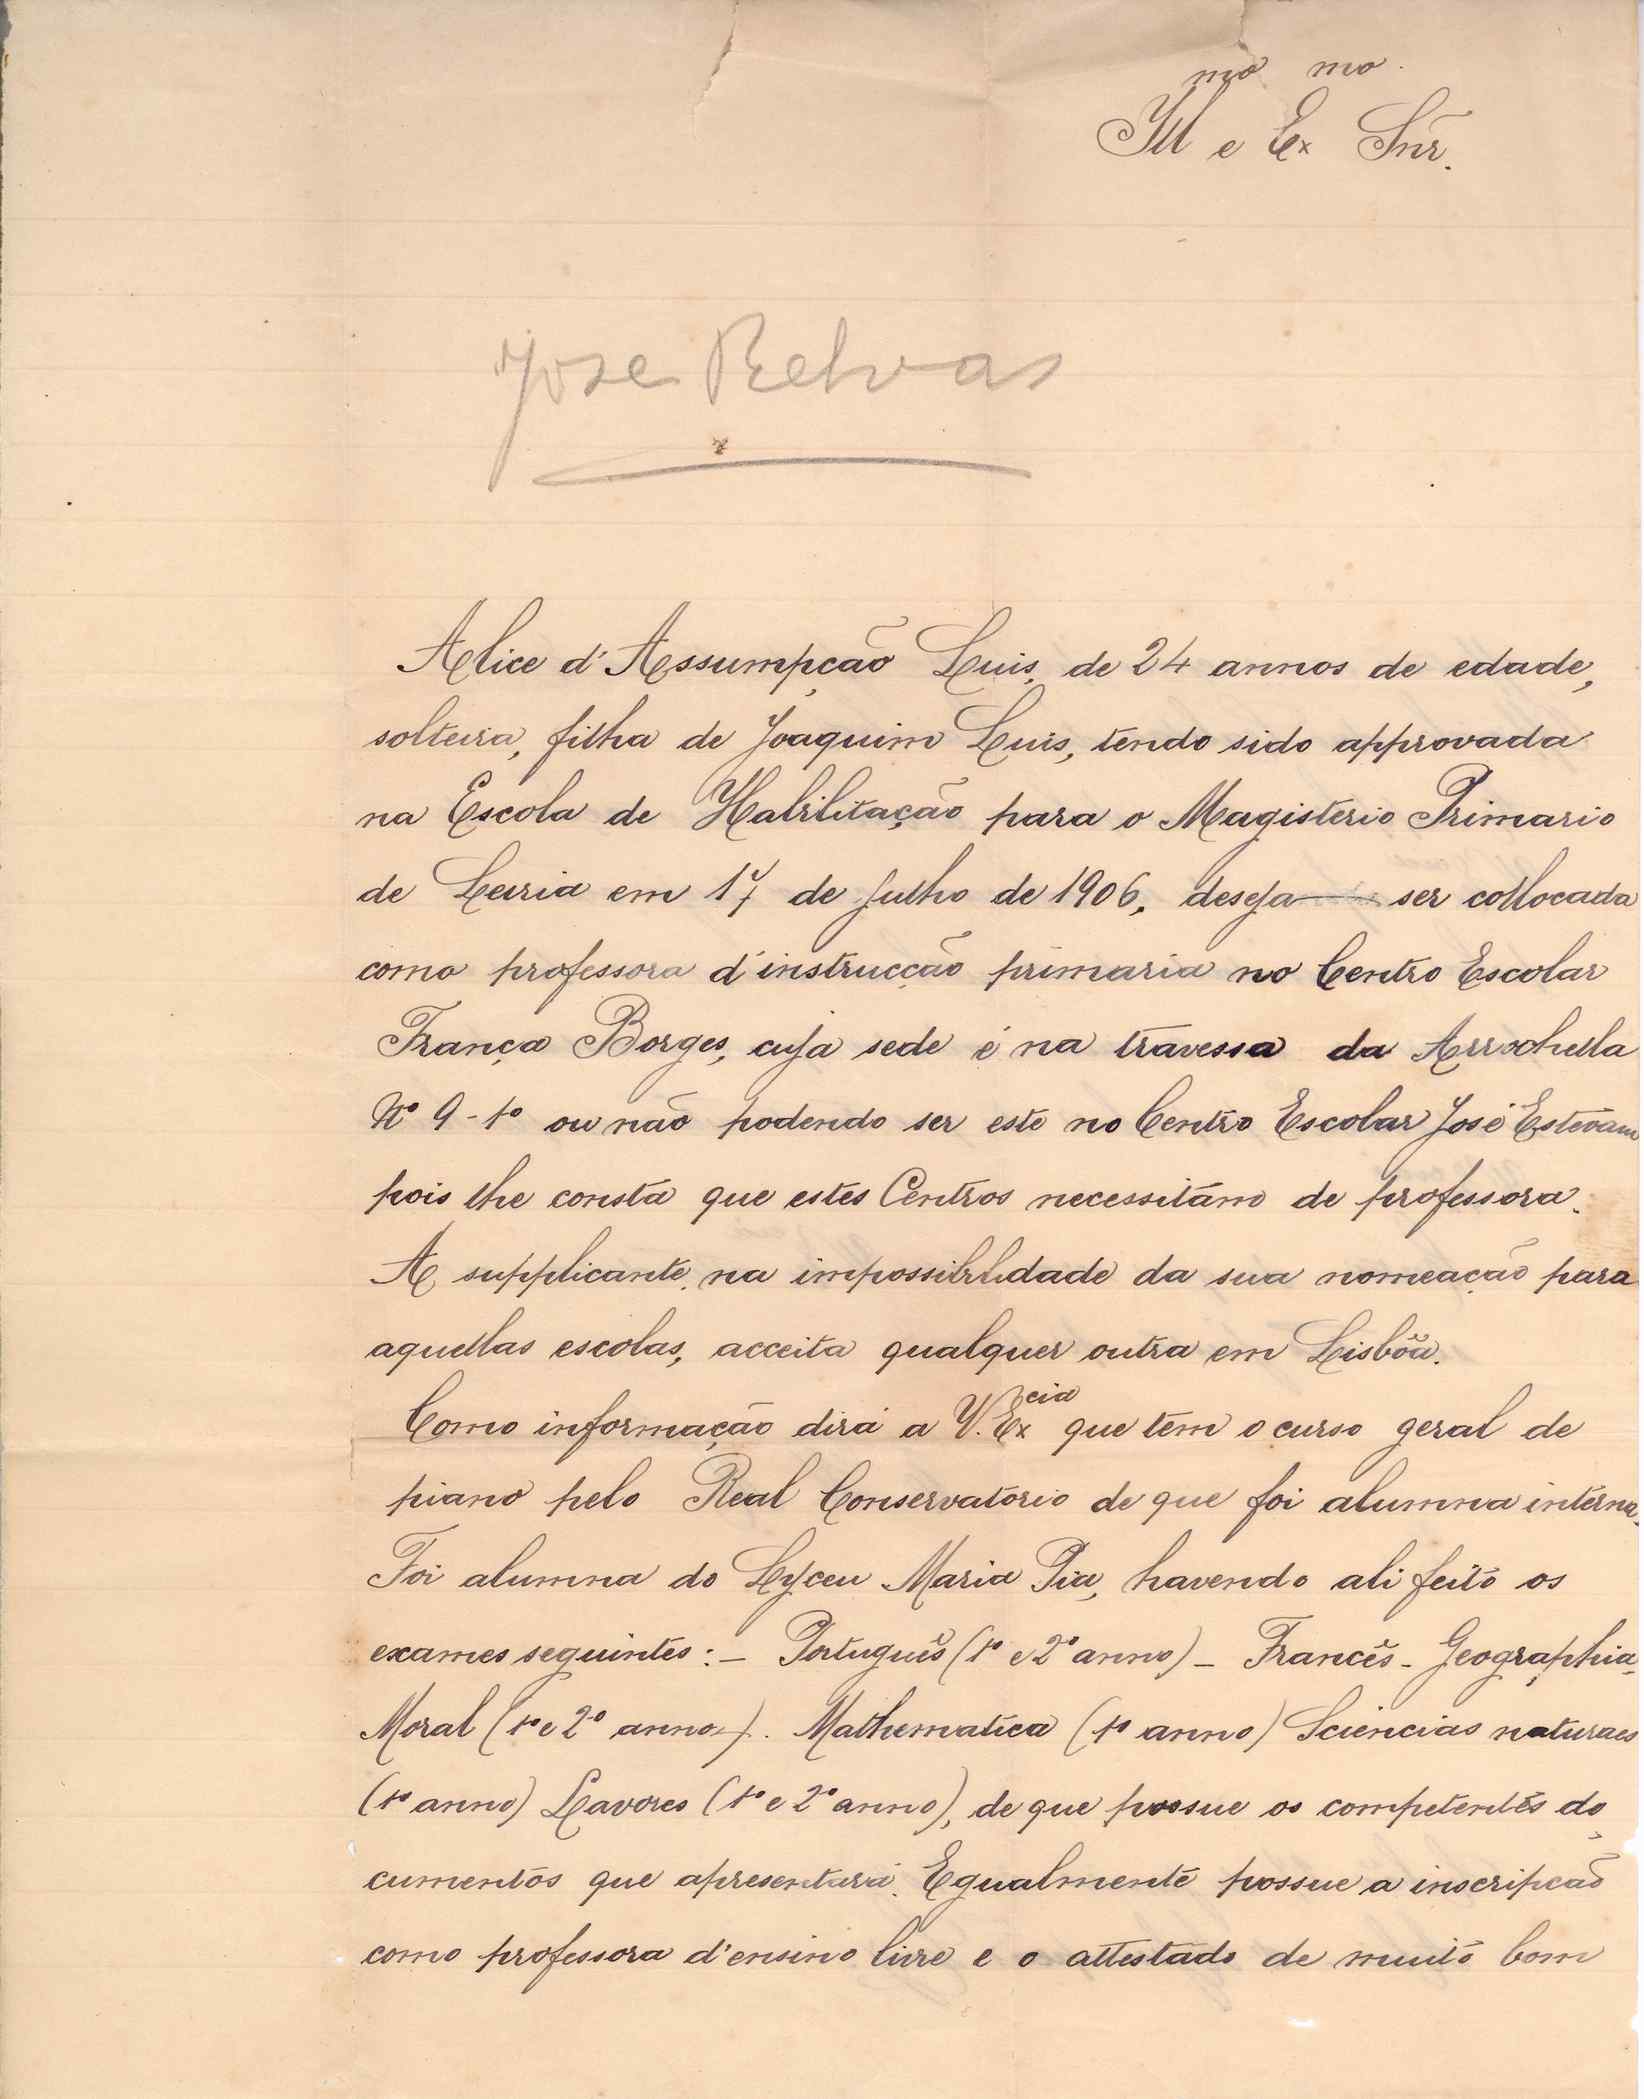 Ill^mo e Ex^mo Snr.
José Relvas
Alice d'Assumpção Luis, de 24 annos de edade,
solteira, filha de Joaquim Luis, tendo sido approvada
na Escola de Habilitação para o Magisterio Primario
de Leiria em 17 de Julho de 1906, deseja ser collocada
como professora d'instrucção primaria no Centro Escolar
França Borges, cuja sede é na travessa da Arrochella
Nº 9-1º ou não podendo ser este no Centro Escolar José Estevam
pois lhe consta que estes Centros necessitam de professora.
A supplicante, na impossibilidade da sua nomeação para
aquellas escolas, acceita qualquer outra em Lisbôa.
Como informação dirá a V. Ex^cia que tem o curso geral de
piano pelo Real Conservatorio de que foi alumna interna.
Foi alumna do Lyceu Maria Pia, havendo ali feito os
exames seguintes:– Português (1º e 2º anno) – Francês – Geographia –
Moral (1º e 2º anno). Mathematica (1º anno) Sciencias naturaes
(1º anno) Lavores (1º e 2º anno), de que possue os competentes do-
cumentos que apresentará. Egualmente possue a inscripção
como professora d'ensino livre e o attestado de muito bom